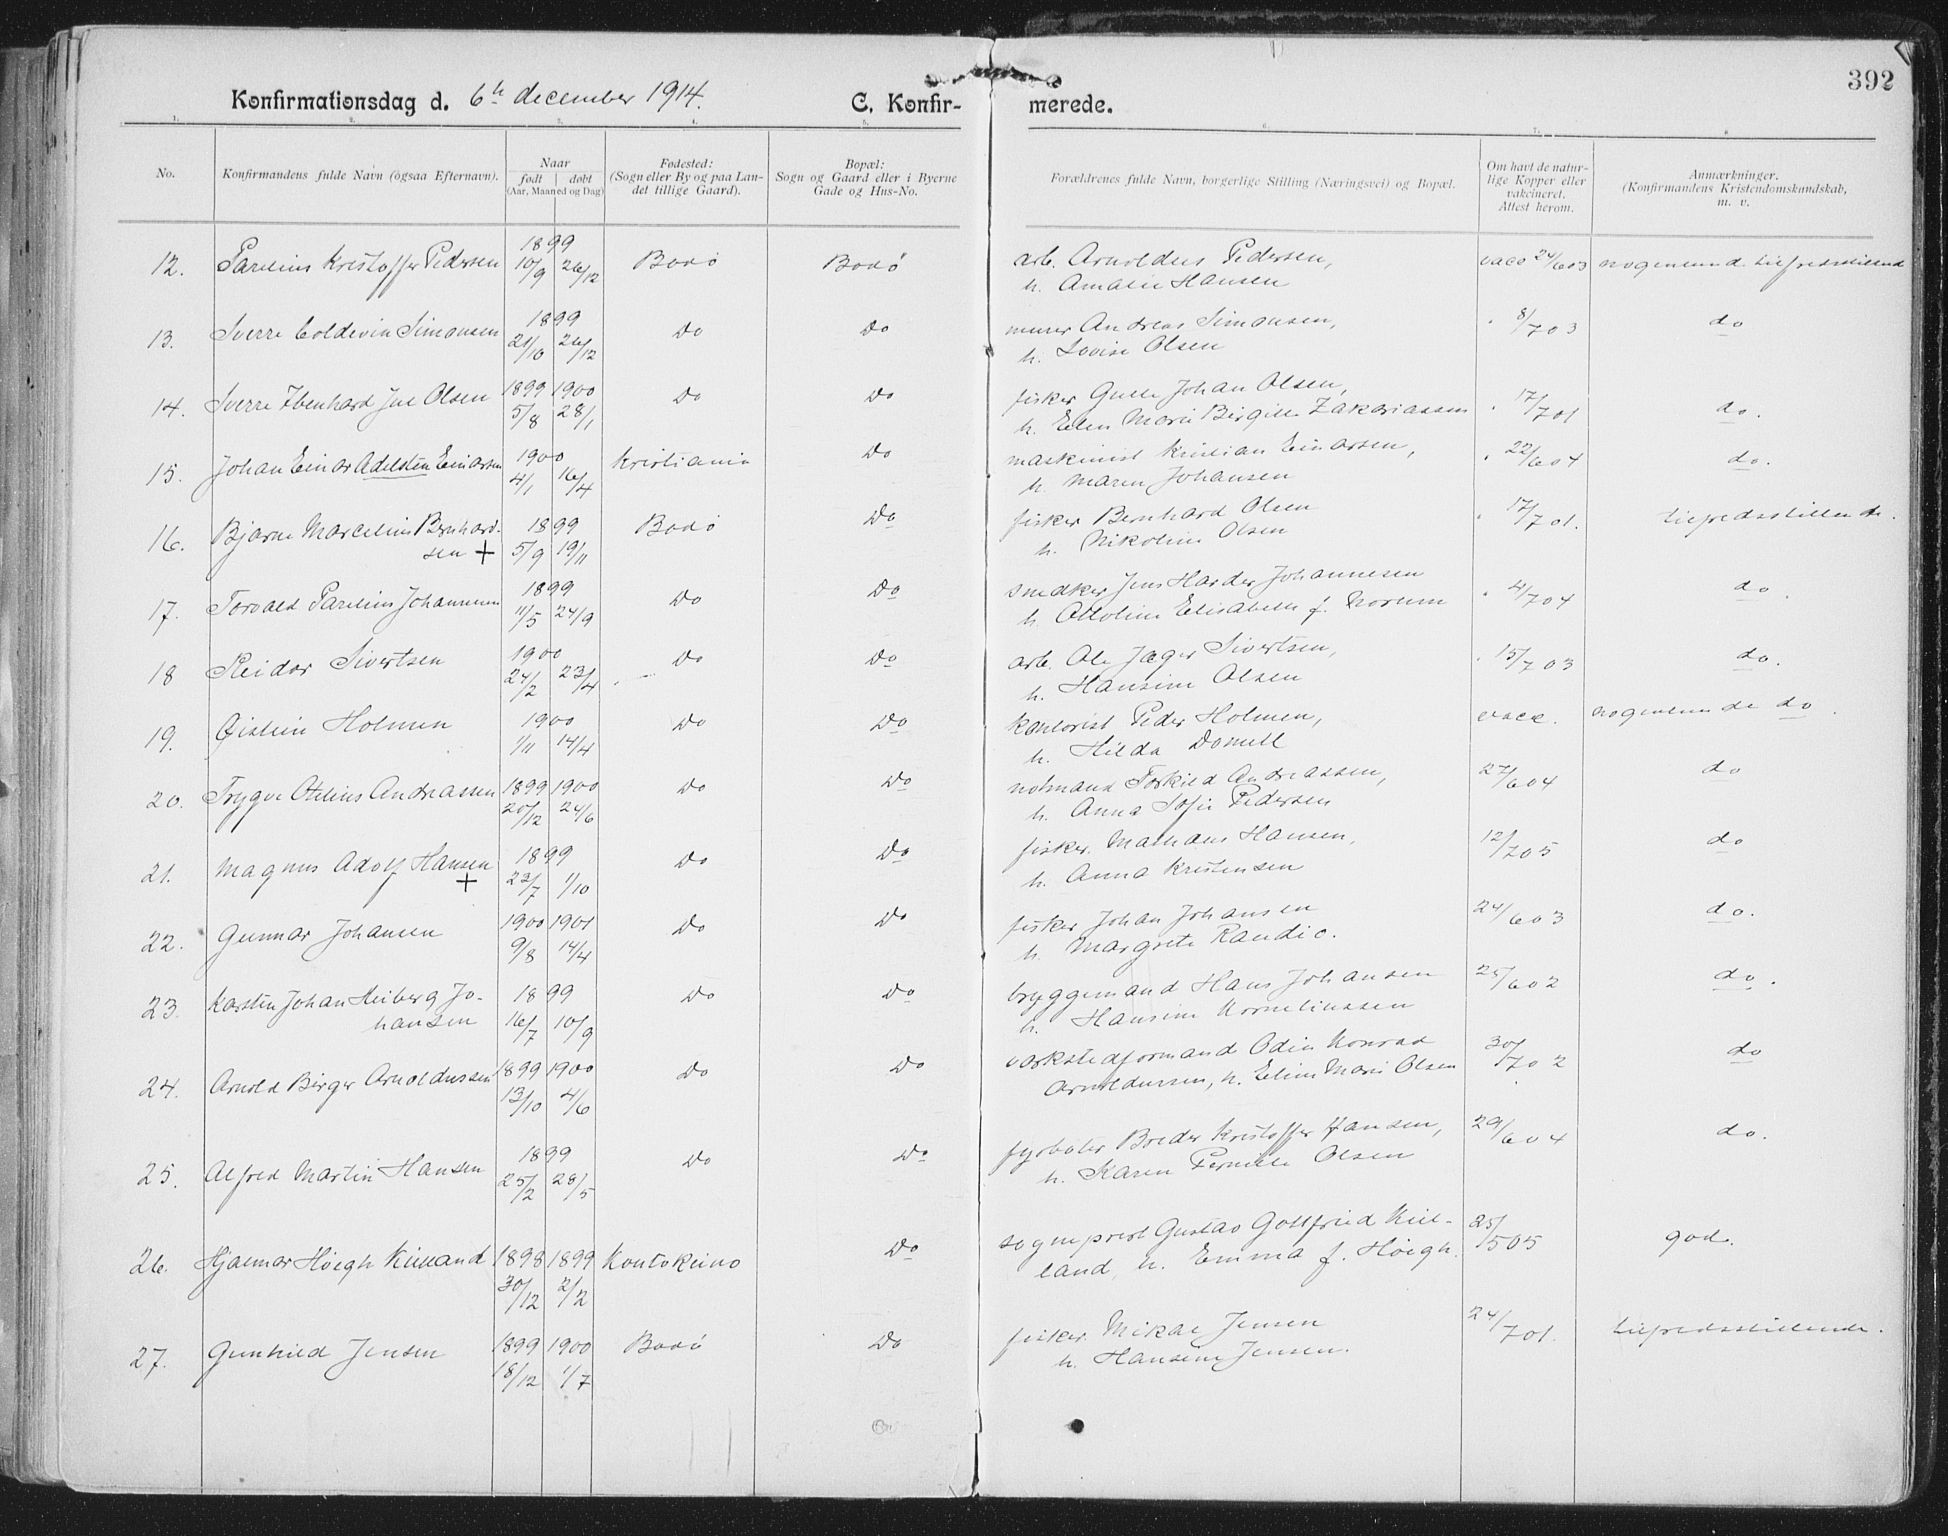 392
Konfirmationsdag d. 6te december 1914. C. Konfir- merede.
1. 2. 3. 4. 5. 6. 7. 8.
No. | Konfirmandens fulde Navn (ogsaa Efternavn). | Naar født døbt (Aar, Maaned og Dag) | Fødested: (Sogn eller By og paa Landet tillige Gaard). | Bopæl: Sogn og Gaard eller i Byerne Gade og Hus-No. | Forældrenes fulde Navn, borgerlige Stilling (Næringsvei) og Bopæl. | Om havt de naturlige Kopper eller vakcineret. Attest herom. | Anmærkninger. (Konfirmandens Kristendomskundskab, m. v.
12. Parelius Kristoffer Pedersen 1899 10/9 26/12 Bodø Bodø arb. Arnoldus Pedersen, vacc 24/6 03 nogenlunde tilfredsstillend
h. Amalie Hansen
13. Sverre Coldevin Simonsen 1899 21/10 26/12 Do Do murer Andreas Simonsen, " 8/7 03 do
h. Lovise Olsen
14. Sverre Ibenhard Juel Olsen 1899 1900 5/8 28/1 Do Do fisker Johan Olsen, " 17/7 01 do.
h. Elen Marie Birgitte Zakariassen
15. Johan Einar Adelsten Einarsen 1900 4/1 16/4 Kristiania Do maskinist Kristian Einarsen, " 22/6 04 do.
h. Maren Johansen
16. Bjarne Marcelius Bernhard- 1899 5/9 19/11 Bodø Do fisker Bernhard Olsen " 17/7 01. tilfredsstillende.
sen + h. Nikoline Olsen
17. Torvald Parelius Johannesen 1899 11/5 24/9 Do Do snedker Jens Harder Johannesen " 4/7 04 do.
h. Ottoline Elisabeth f. Norum
18 Reidar Sivertsen 1900 24/2 23/4 Do Do arb. Ole Jæger Sivertsen, " 15/7 03 do.
h. Hansine Olsen
19. Øistein Holmen 1900 1/11 14/4 Do Do kontorist Peder Holmen, vacc. nogenlunde do.
h. Hilda
20. Trygve Otelius Andreassen 1899 1900 20/12 24/6 Do Do notmand Torkild Andreassen, 27/6 04 do
h. Anna Sofie Pedersen
21. Magnus Adolf Hansen + 1899 22/7 1/10 Do Do fisker Mathæus Hansen, 12/7 05 do
h. Anna Kristensen
22. Gunnar Johansen 1900 1901 9/8 14/4 Do Do fisker Johan Johansen 24/6 03 do.
h. Margrete
23. Karsten Johan Heiberg Jo- 1899 16/7 10/9 Do Do bryggemand Hans Johansen 25/6 02 do.
hansen h. Hansine Korneliussen
24. Arnold Birger Arnoldussen 1899 1900 13/10 4/6 Do Do værkstedformand Odin Konrad 30/7 02 do
Arnoldussen, h. Eline Marie Olsen
25. Alfred Martin Hansen 1899 25/2 28/5 Do Do fyrbøter Breder Kristoffer Hansen, 29/6 04 do.
h. Karen Pernille Olsen
26. Hjalmar Høegh Kielland 1898 1899 30/12 2/2 Kontokeino Do sogneprest Gustav Gottfried Kiel- 25/5 05 god.
land, h. Emma f. Høegh.
27. Gunhild Jensen 1899 1900 18/12 1/7 Bodø Do fisker Mikal Jensen 24/7 01. tilfredsstillende.
h. Hansine Jensen.